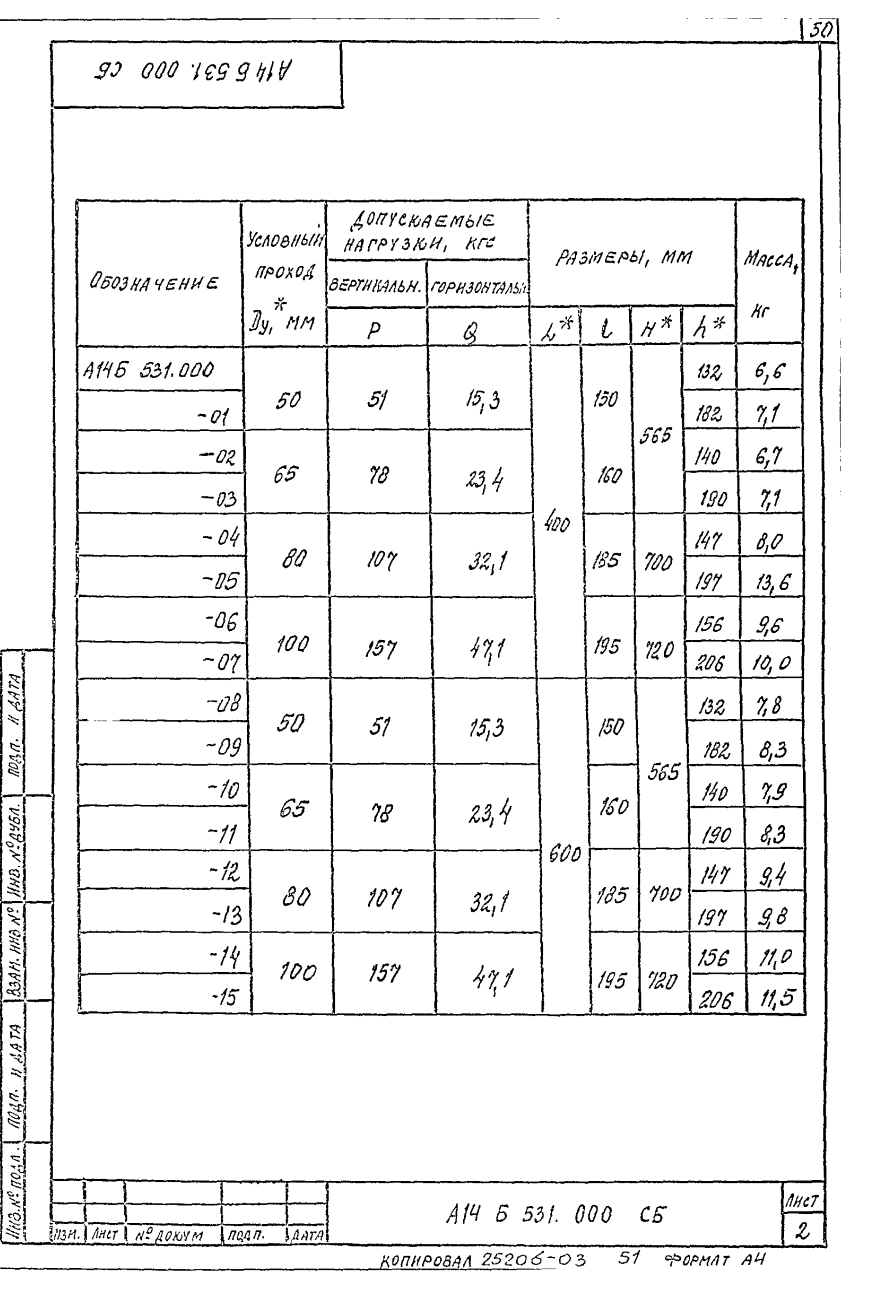 50
А14 Б 531. 000 СБ
Обозначение
Условный проход Dу*, мм
Допускаемые нагрузки, кгс
Размеры, мм
Масса, кг
вертикальн. горизонтальн.
P Q L* l H* h*
А14Б 531.000 50 51 15,3 400 150 565 132 6,6
-01 182 7,1
-02 65 78 23,4 160 140 6,7
-03 190 7,1
-04 80 107 32,1 185 700 147 8,0
-05 197 13,6
-06 100 157 47,1 195 720 156 9,6
-07 206 10,0
-08 50 51 15,3 600 150 565 132 7,8
-09 182 8,3
-10 65 78 23,4 160 140 7,9
-11 190 8,3
-12 80 107 32,1 185 700 147 9,4
-13 197 9,8
-14 100 157 47,1 195 720 156 11,0
-15 206 11,5
Инв.№ подл. Подп. и дата Взам. инв № Инв. № дубл. Подп. и дата
Изм. Лист № докум Подп. Дата
А14 Б 531. 000 СБ
Лист
2
Копировал 25206-03 51 Формат А4